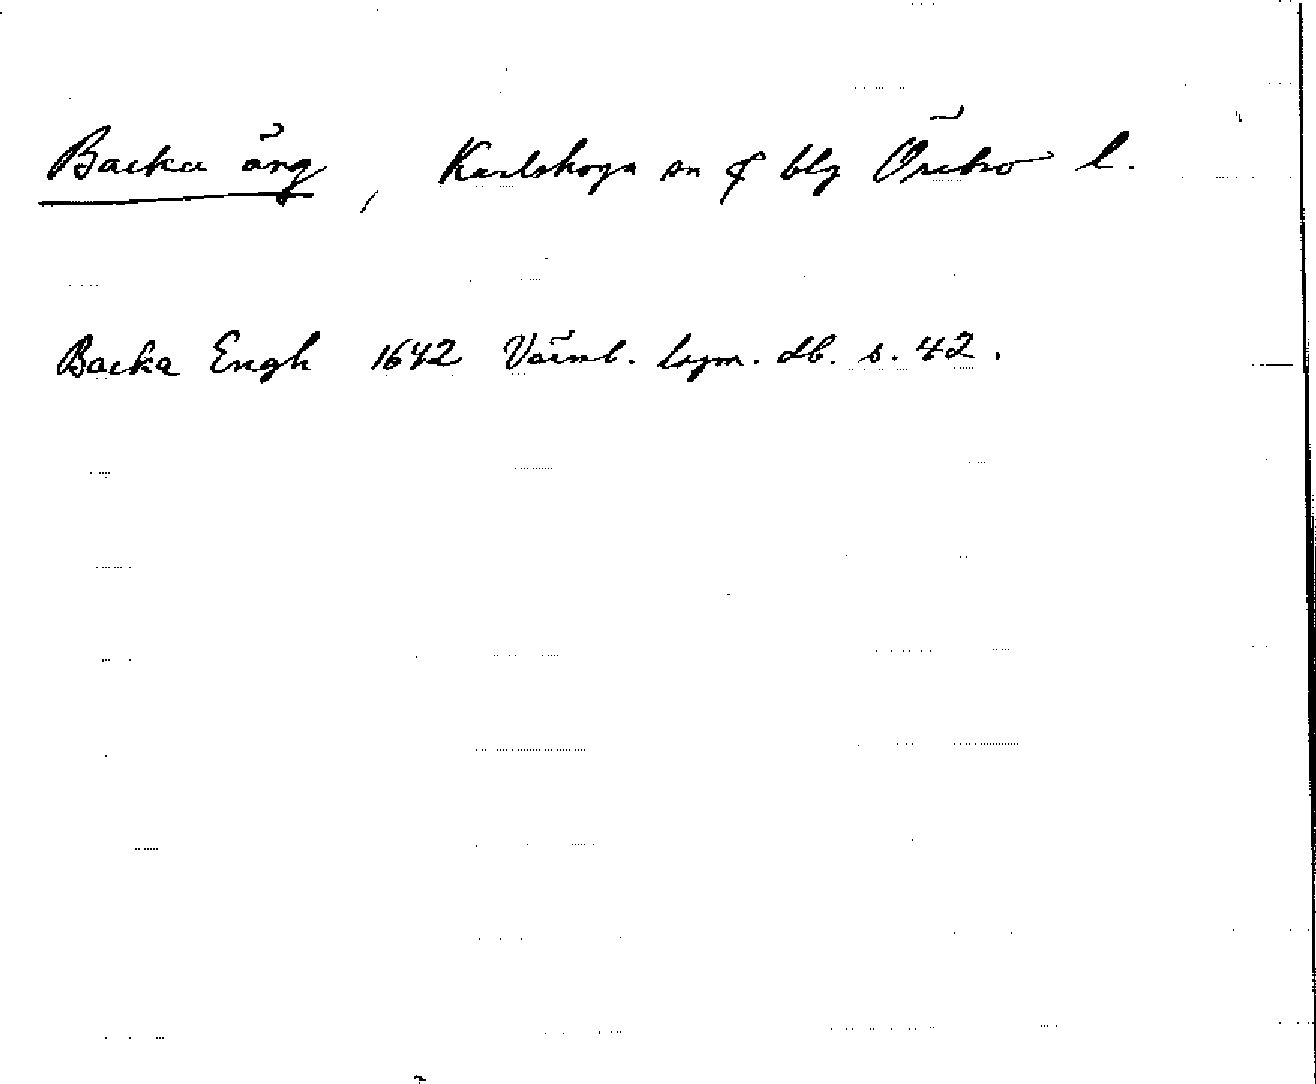 Backa äng, Karlskoga sn & blg Örebro l.
Backa Engh 1642 Värml. lym. db. s. 42.